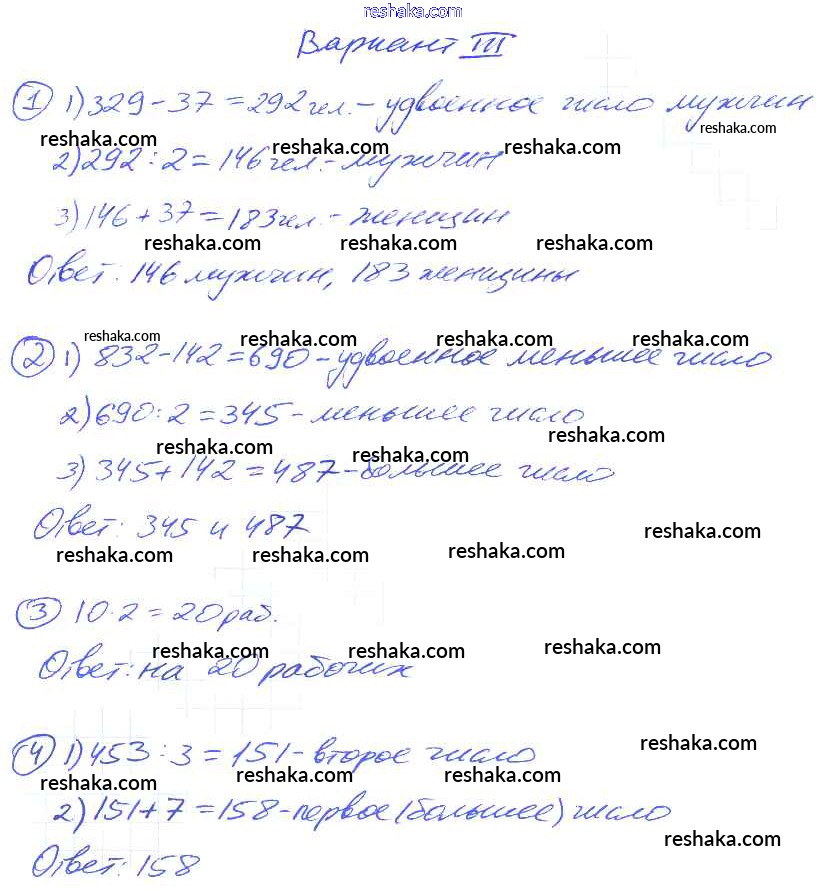 reshaka.com
Вариант III
① 1) 329 - 37 = 292 чел. - удвоенное число мужчин
reshaka.com reshaka.com reshaka.com reshaka.com
2) 292 : 2 = 146 чел. - мужчин
3) 146 + 37 = 183 чел. - женщин
reshaka.com reshaka.com reshaka.com
Ответ: 146 мужчин, 183 женщины
reshaka.com reshaka.com reshaka.com reshaka.com
② 1) 832 - 142 = 690 - удвоенное меньшее число
2) 690 : 2 = 345 - меньшее число
reshaka.com reshaka.com reshaka.com
3) 345 + 142 = 487 - большее число
Ответ: 345 и 487
reshaka.com reshaka.com reshaka.com reshaka.com
③ 10 · 2 = 20 раб.
reshaka.com reshaka.com reshaka.com
Ответ: на 20 рабочих
④ 1) 453 : 3 = 151 - второе число
reshaka.com
reshaka.com reshaka.com reshaka.com
2) 151 + 7 = 158 - первое (большее) число
reshaka.com
Ответ: 158